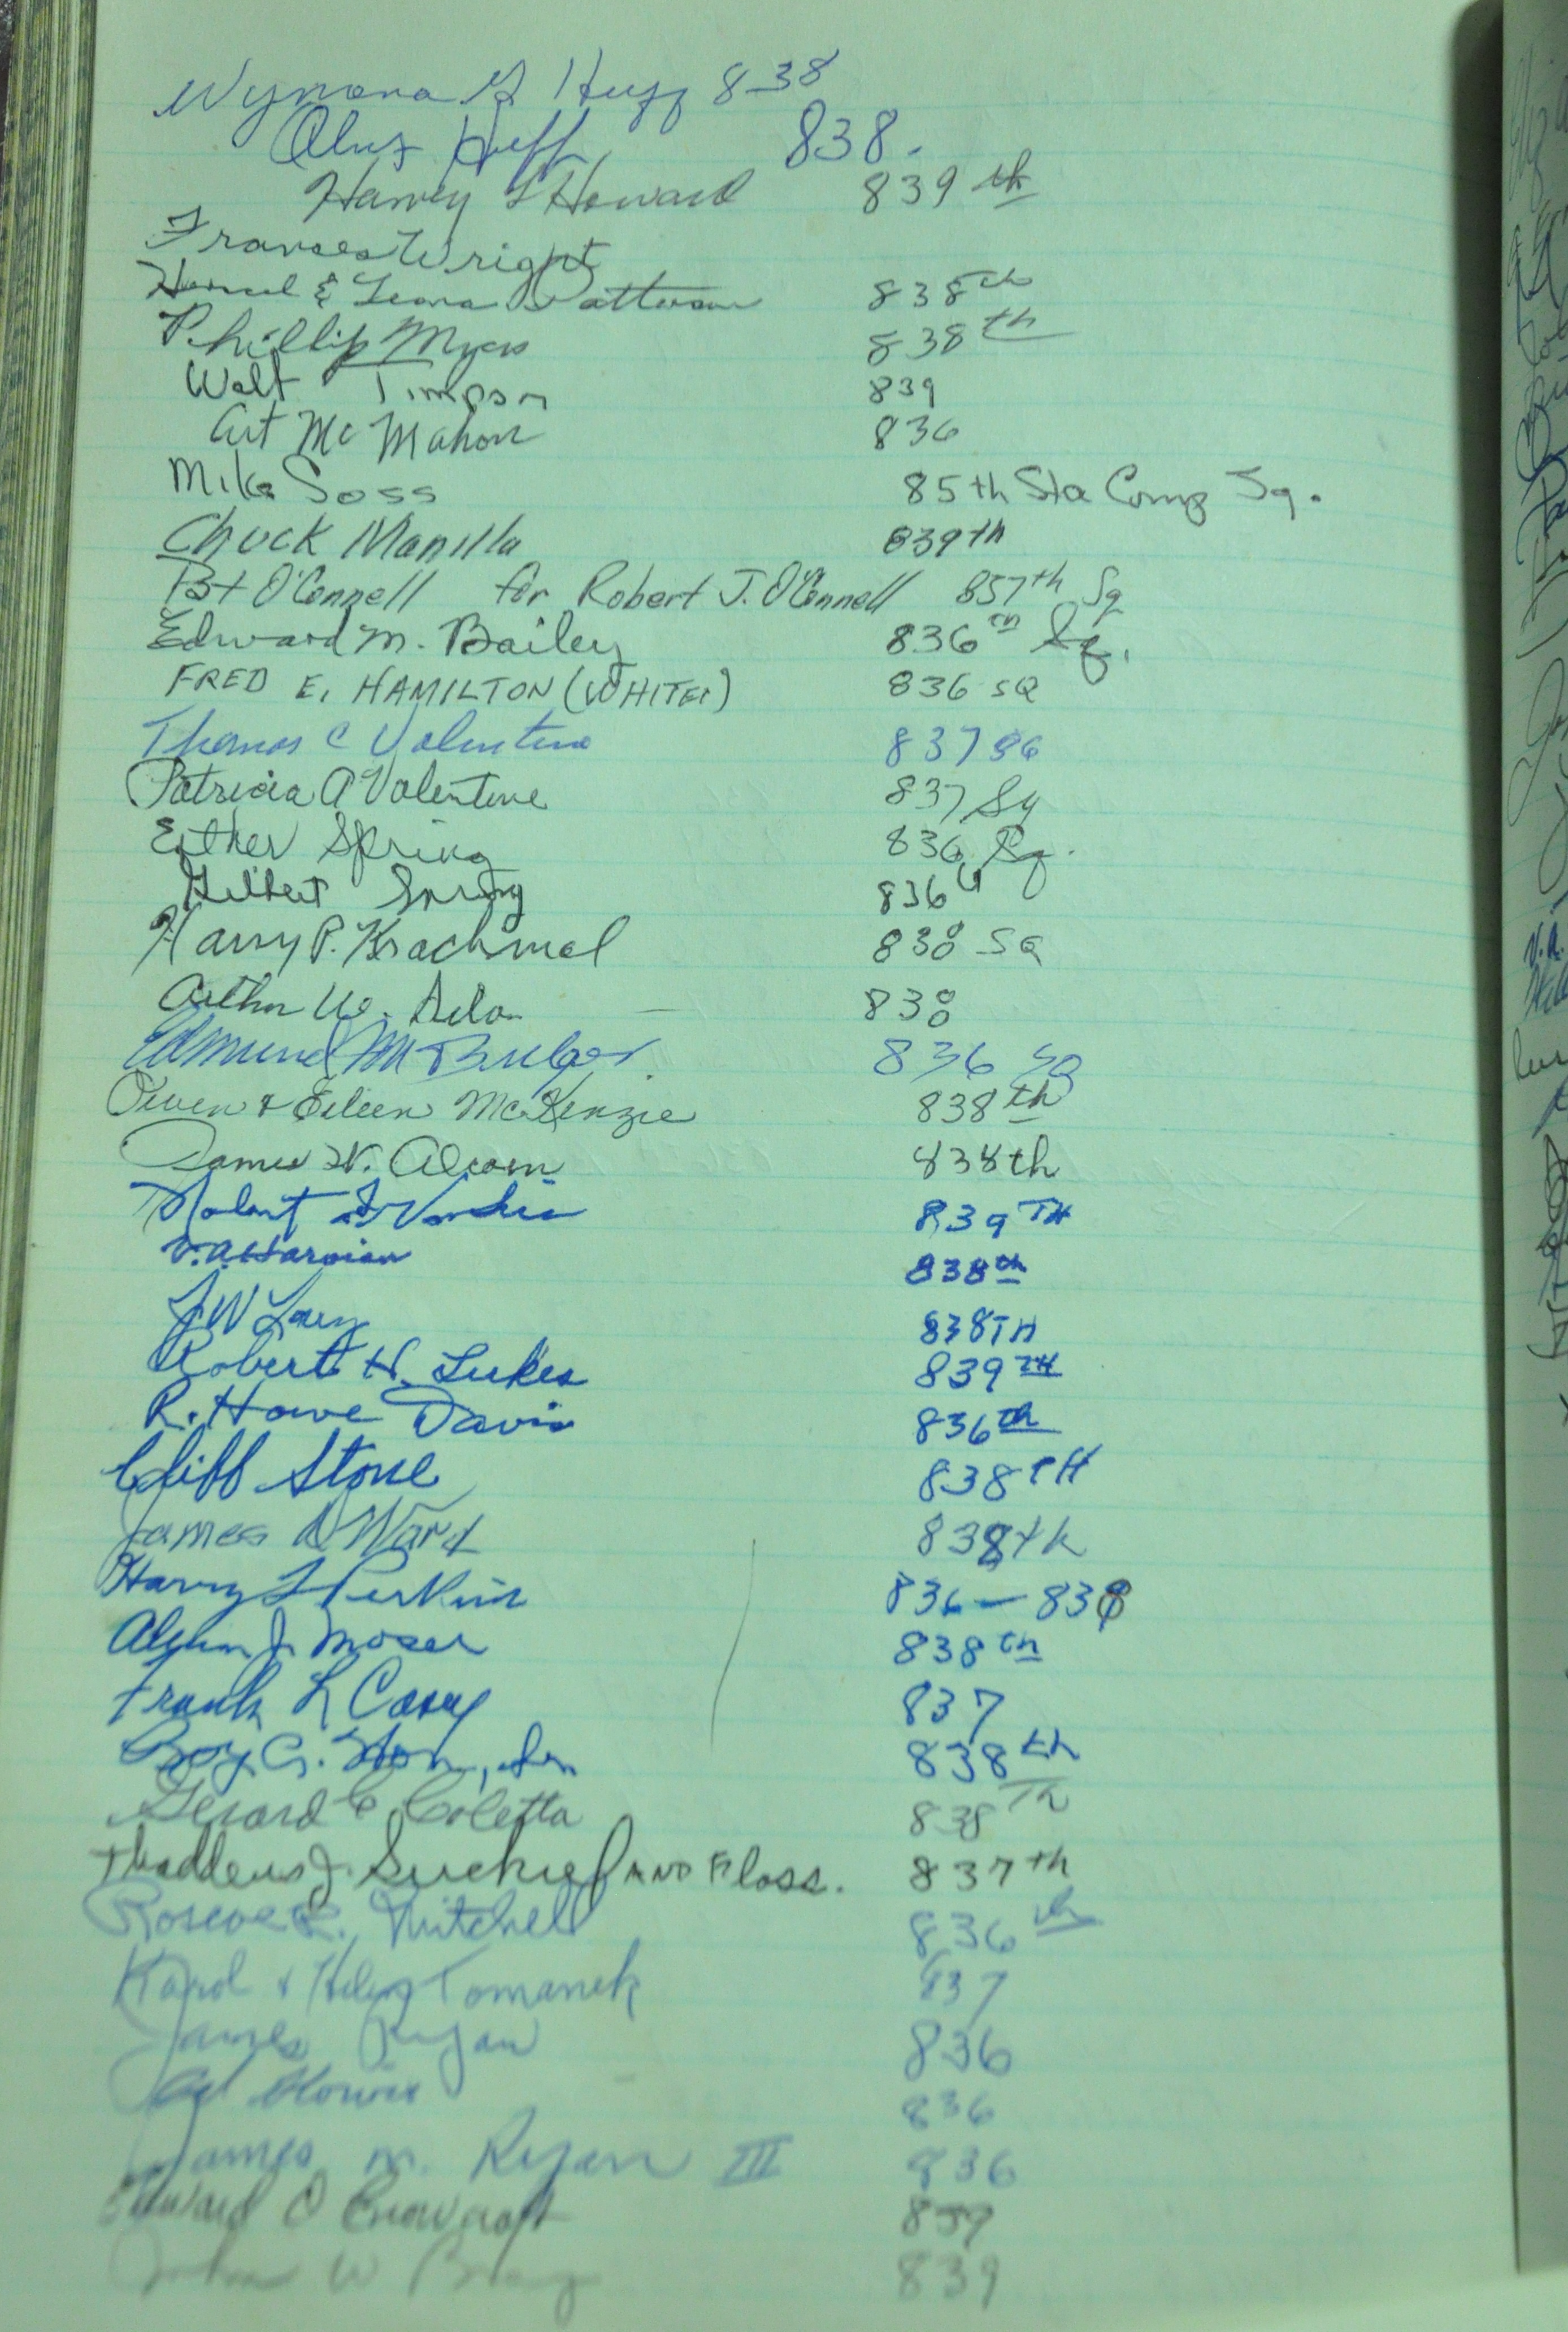 Wynona G Huff 838
Huff 838.
Harvey L Howard 839th
Frances Wright
& Leona Patterson 838th
Phillip Myers 838th
Walt Timpson 839
Art McMahon 836
Mike Soss 85th Sta Comp Sq.
Chuck Manilla 839th
O'Connell for Robert J. O'Connell 837th Sq
Edward M. Bailey 836th Sq.
FRED E. HAMILTON (WHITEY) 836 SQ
Thomas C Valentine 837 SQ
Patricia A Valentine 837 Sq
Esther Spring 836 Sq.
Gilbert Spring 836
Harry P. Krachmal 838 SQ
Arthur W. 838
Edmund M 836 SQ
Owen & Eileen McKenzie 838th
James W. Alcorn 838th
Robert 839TH
V.A. 838th
838TH
Robert H. Lukes 839TH
R. Howe Davis 836th
Cliff Stone 838TH
James D Ward 838th
Harry L Perkins 836 — 838
J. Moser 838th
Frank L Casey 837
Roy G. 838th
Gerard C Coletta 838Th
Thaddeus J. AND Floss. 837th
Roscoe R. Mitchell 836th
Karol & Helen Tomanek 837
James Ryan 836
836
James M. Ryan III 836
Edward O 839
John W 839